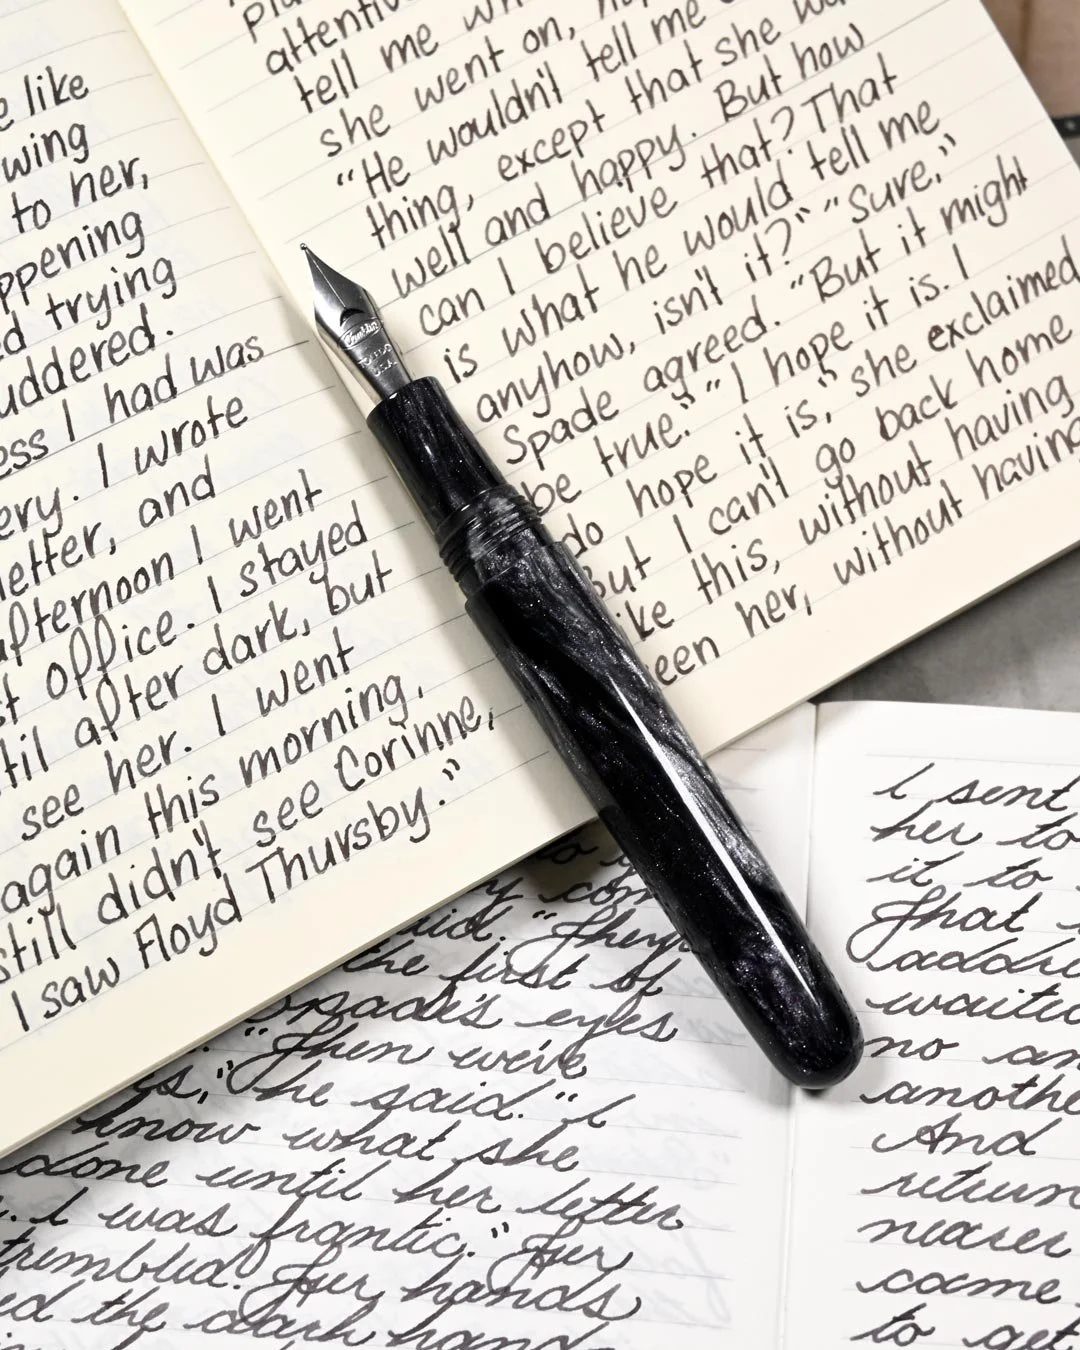 like
wing
to her,
ppening
d trying
uddered.
ess I had was
ery. I wrote
letter, and
afternoon I went
st office. I stayed
til after dark, but
see her. I went
again this morning,
still didn't see Corinne,
I saw Floyd Thursby."
attentiv
tell me wh
she went on,
"He wouldn't tell me
thing, except that she wa
well and happy. But how
can I believe that? That
is what he would tell me
anyhow, isn't it?" "Sure,"
Spade agreed. "But it might
be true." "I hope it is. I
do hope it is," she exclaimed
But I can't go back home
like this, without having
een her, without having
Franklin
TOLEDO
U.S.A.
com
said. "They
the first of
Spade's eyes
"Then we've
es," he said. "I
know what she
done until her letter
. I was frantic." Her
trembled. Her hands
ed the dark hand
I sent
her to
it to
That
addre
waited
no an
anothe
And
return
nearer
came
to get